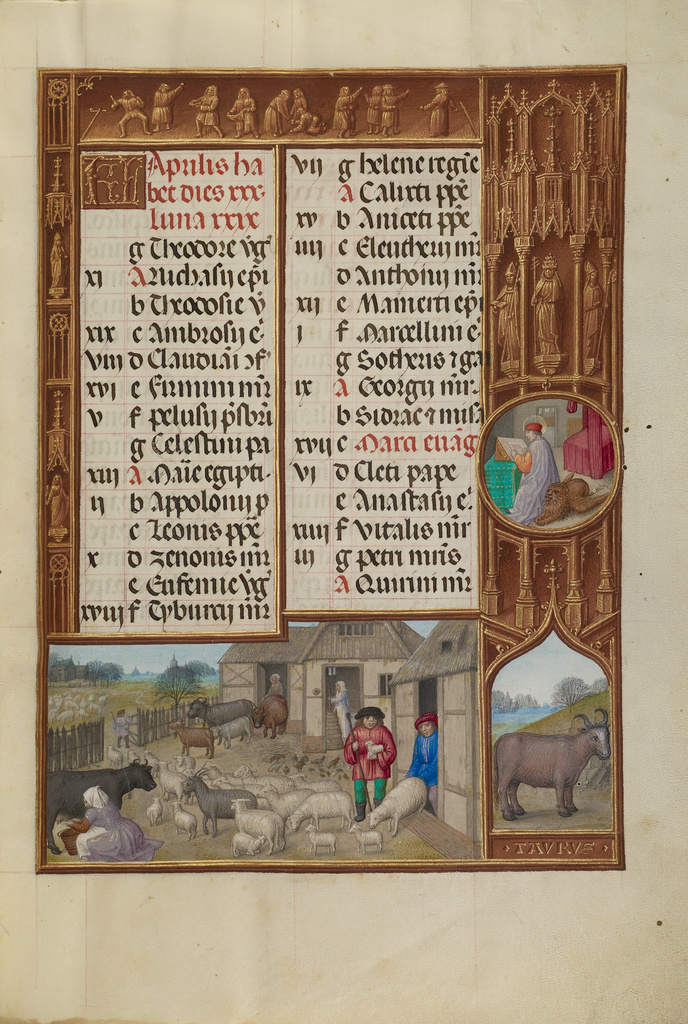 KL Aprilis ha
bet dies xxx.
luna xxix
g Theodore v̄ḡ
xi A Ruchasij ep̄i
b Theodosie v̄
xix c Ambrosij e.
viii d Claudiāi
xvi e Firmini mr̄
v f pelusij p̄sbri
g Celestini pa
xiii A Marie egipti.
ii b Appolonij p
c Leonis pp̄e
x d zenonis mr̄
e Eufemie v̄ḡ
xviii f Tyburcij mr̄
vii g helene regīe
A Calixti pp̄e
xv b Aniceti pp̄e
iiii c Eleutherij mr̄
d Anthonij mr̄
xii e Mamerti ep̄i
i f Marcellini e.
g Sotheris ⁊ ga
ix A Georgij mr̄.
b Sidrac ⁊ mis
xvii c Marci euāg
vi d Cleti pape
e Anastasij e.
xiiii f Vitalis mr̄
iii g petri mr̄is
A Quirini mr̄
TAVRVS